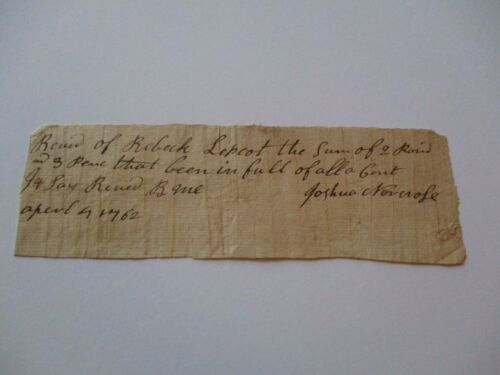 Recud of Rebeck Lepcot the Sum of 2 Poun
nd 3 Penc that been in full of all a Cont
I Say Recud B me Joshua Norcrose
aperl 9 1762